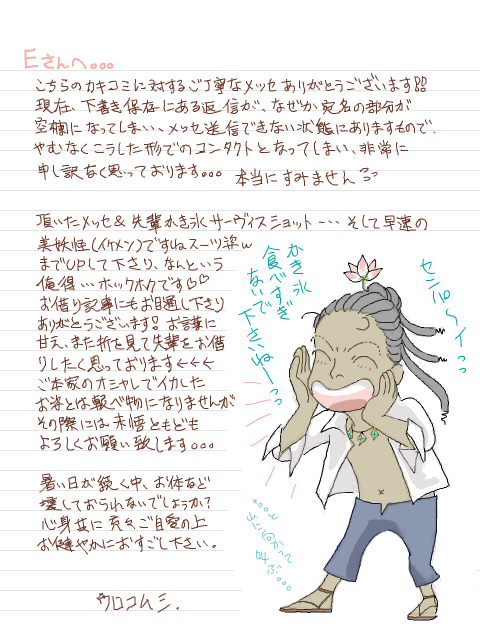 Eさんへ。。。
こちらのカキコミに対するご丁寧なメッセありがとうございます!!
現在、下書き保存にある返信が、なぜか宛名の部分が
空欄になってしまい、メッセ送信できない状態にありますもので、
やむなくこうした形でのコンタクトとなってしまい、非常に
申し訳なく思っております。。。 本当にすみません
頂いたメッセ&先輩かき氷サーヴィスショット… そして早速の
美妖怪(イケメン)ですねスーツ姿w
までUPして下さり、なんという
俺得…ホックホクです♡♡
お借り記事にもお目通し下さり
ありがとうございます! お言葉に
甘え、また折を見て先輩をお借
りしたく思っております←←←
ご本家のオシャレでイカした
お洋とは較べ物になりませんが
その際には未悟ともども
よろしくお願い致します。。。
暑い日が続く中、お体など
壊しておられないでしょうか?
心身共に充々ご自愛の上
お健やかにおすごし下さい。
ウロコムシ.
かき氷
食べすぎ
ないで
下さいねーっっ
センパ〜イっっ
。。。と
山に向かって
叫ぶ。。。